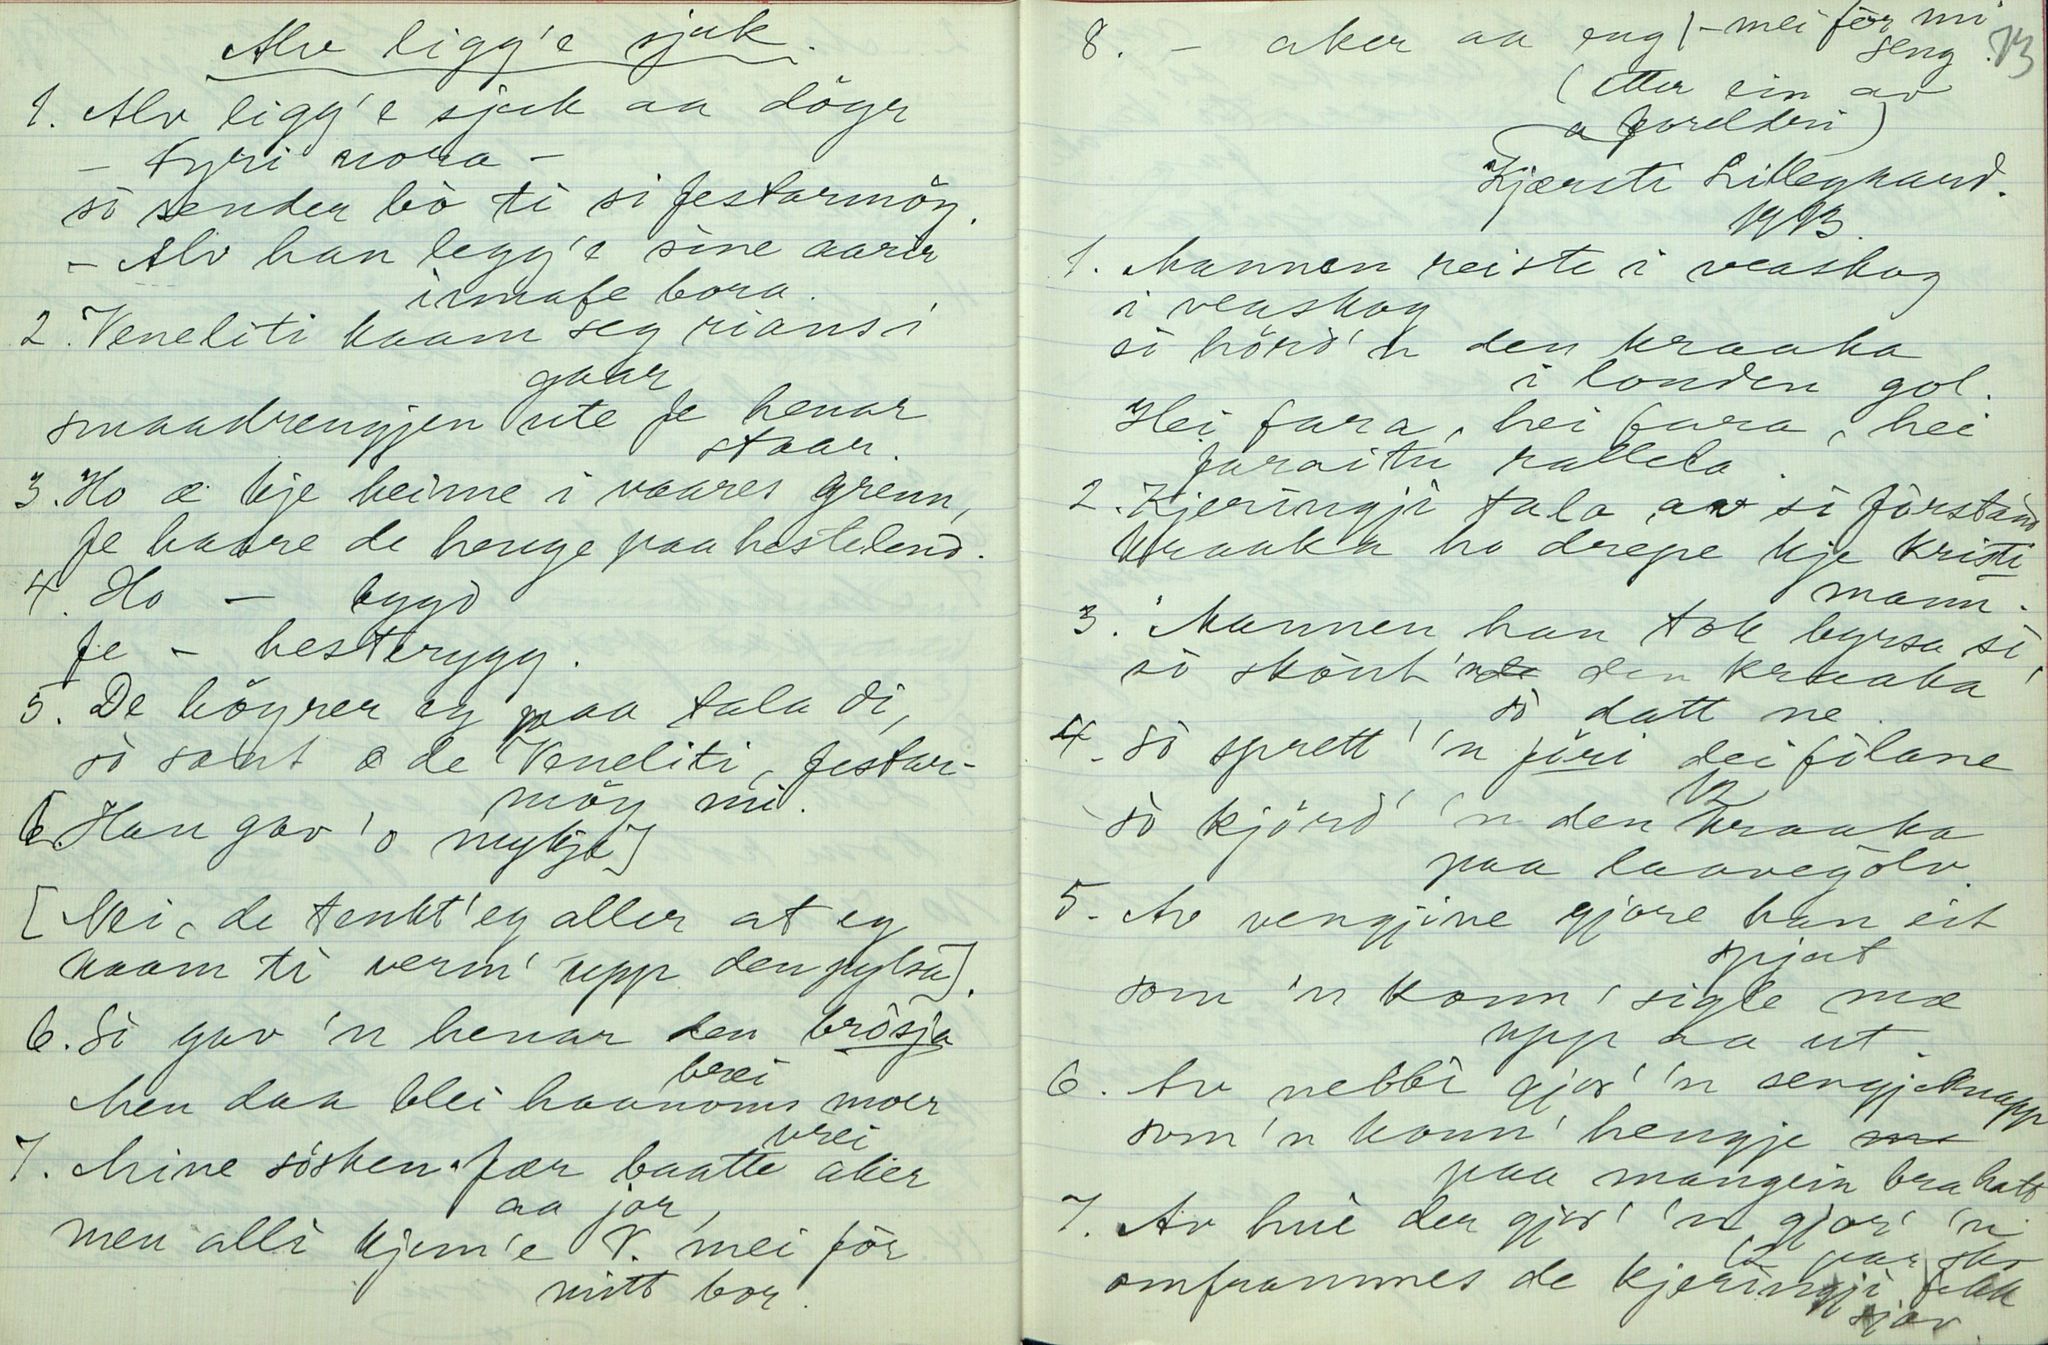 Alv ligg'e sjuk.
1. Alv ligg'e sjuk aa döyr
- fyri nora -
sò sender bò ti si festarmöy.
- Alv han legg'e sine aarir
irmafe bora.
2. Veneliti kaam seg rians i
gaar
smaadrengjen ute fe henar
staar.
3. Ho æ kje heime i vaares grenn,
fe baare de henge paa hestelend.
4. Ho - bygd
fe - hesterygg.
5. De höyrer eg paa tala di,
sò sant æ de Veneliti, festar-
möy mi.
[6. Han gav 'o mykje]
[Nei, de tenkt'eg aller at eg
kaam ti verm' upp den pylsa].
6. Si gav 'n henar den brösja
brei
Men daa blei haanoms moer
vrei
7. Mine sösken fær baatte aker
aa jor,
men alli kjem'e V. mei för
mitt bor.
8. - aker aa eng - mei för mi
seng. 73
(etter ein av
foreldri)
Kjærsti Lillegaard.
1913.
1. Mannen reiste i veaskog
i veaskog
si hörd'n den kraaka
i londen gol.
Hei fara, hei fara, hei
faraitu rallela.
2. Kjeringji tala av si förstand
kraaka ho drepe kje kristi
mann.
3. Mannen han tok byrsa si,
sò skönt 'n den kraaka
sò datt ne.
4. Sò sprett' 'n föri dei fölane
12
sò kjörd' 'n den kraaka
paa laavegölv.
5. Av vengjine gjore han eit
spjut
som 'n konn' sigle mæ
upp aa ut.
6. Av nebbi gjor' 'n sengjeknapp
som 'n konn' hengje
paa mangein bra hatt
7. Av hui der gjor' 'n gjor' 'n
12 par sko
omframmes de kjeringji fekk
sjav.